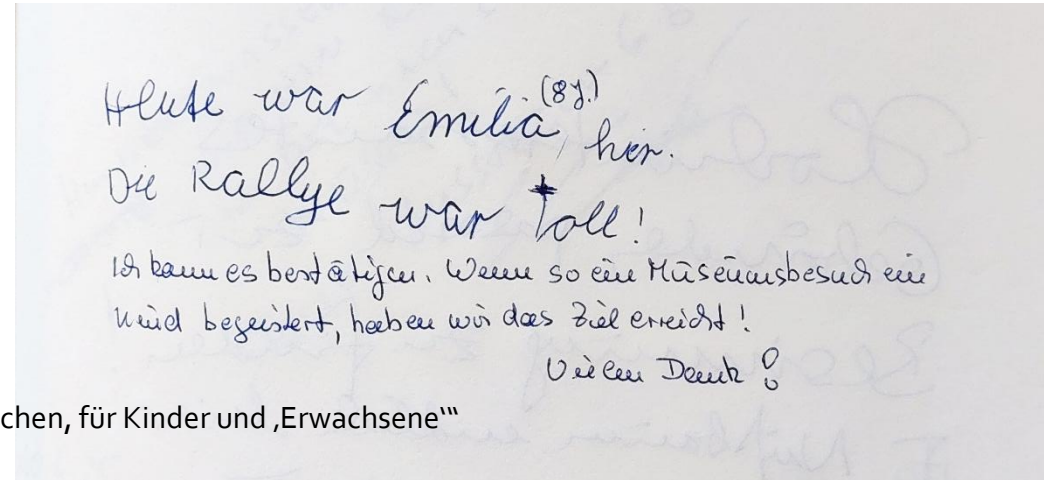 Heute war Emilia (8J.) hier.
Die Rallye war toll!
Ich kann es bestätigen. Wenn so ein Museumsbesuch ein
Kind begeistert, haben wir das Ziel erreicht!
Vielen Dank!
chen, für Kinder und ‚Erwachsene‘“